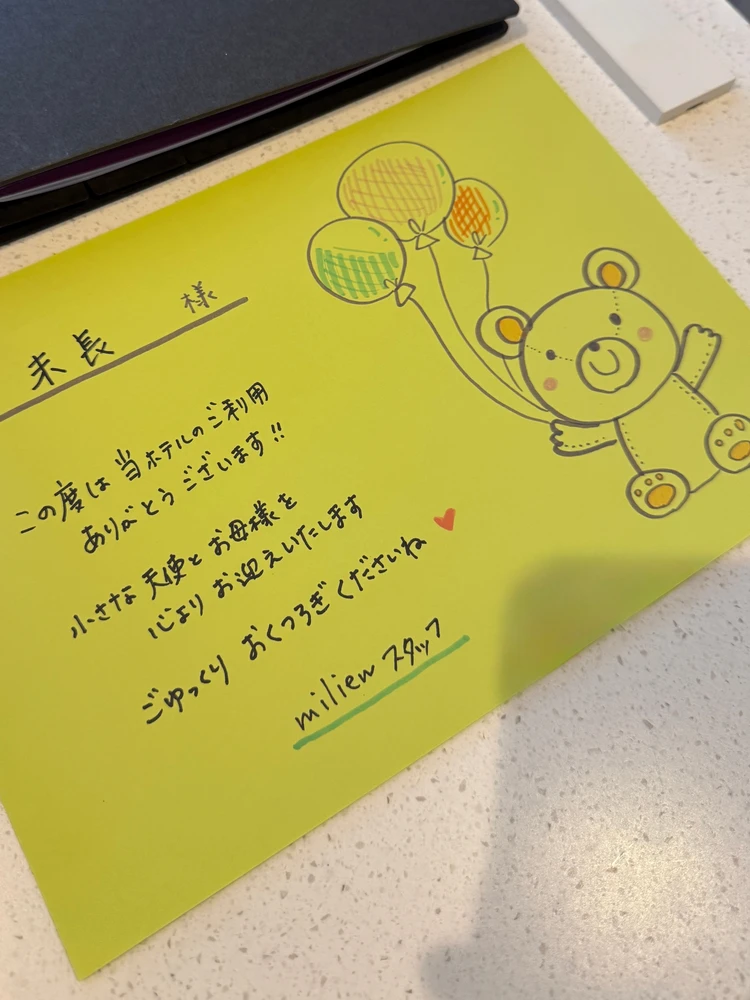 末長 様
この度は当ホテルのご利用
ありがとうございます!!
小さな天使とお母様を
心よりお迎えいたします
ごゆっくり おくつろぎくださいね
milieuスタッフ